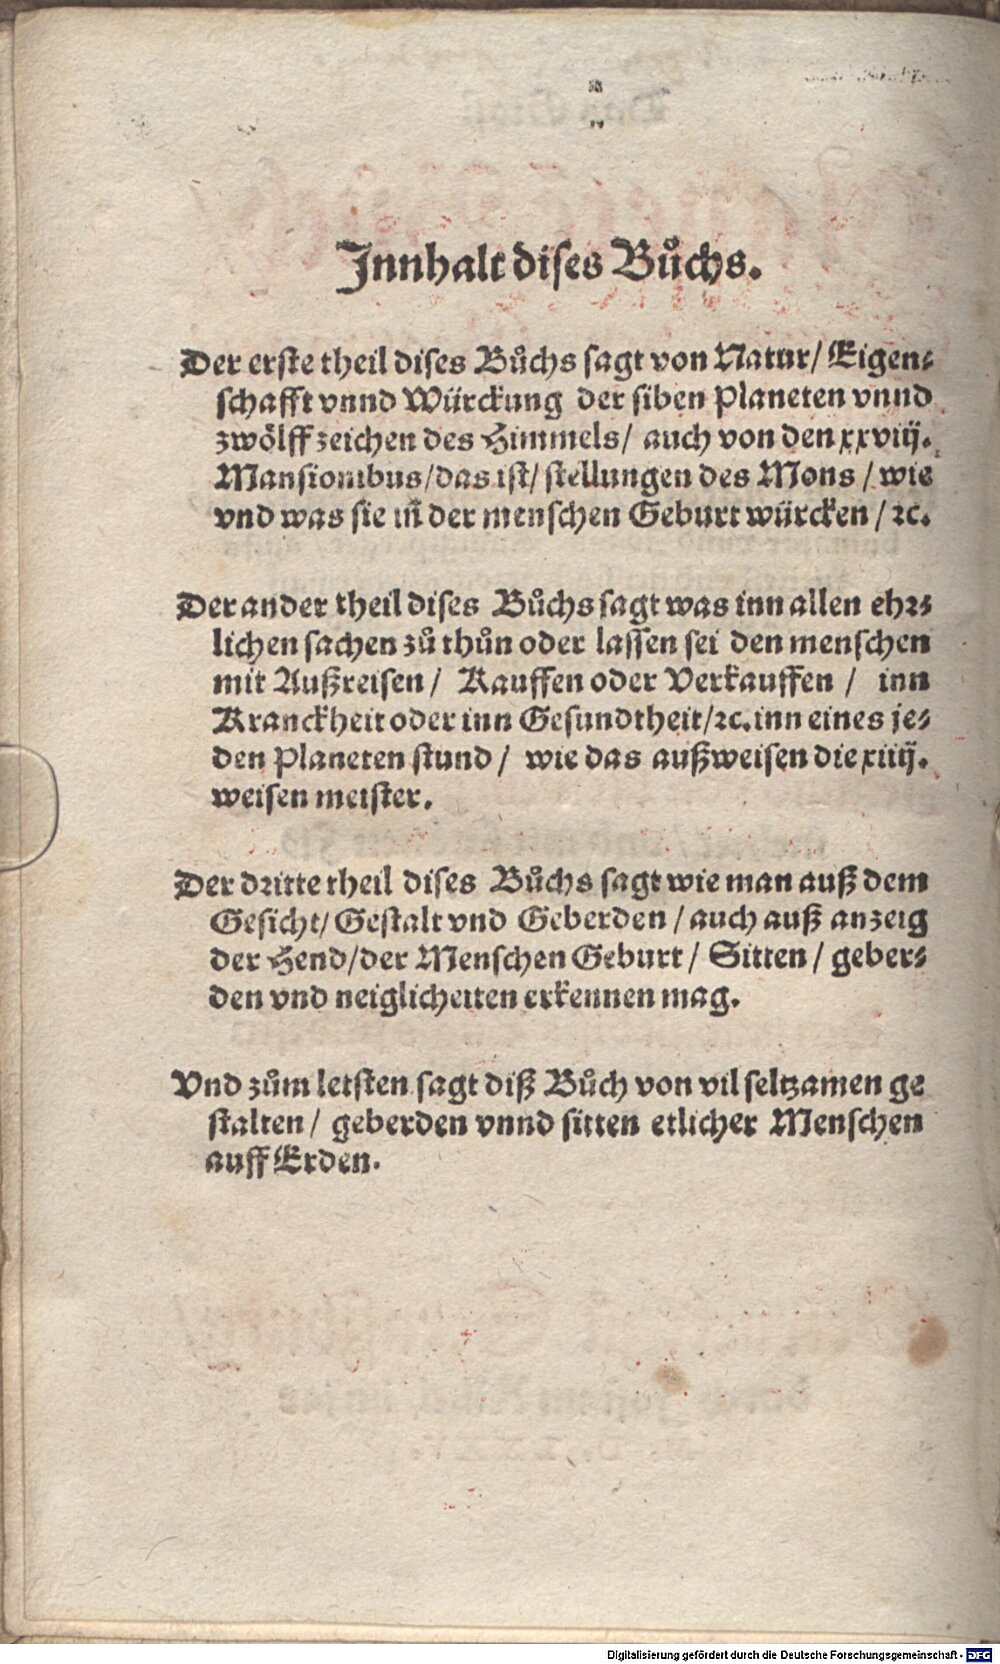 Innhalt dises Bůchs.
Der erste theil dises Bůchs sagt von Natur/ Eigen⸗
schafft vnnd Würckung der siben Planeten vnnd
zwölff zeichen des Himmels/ auch von den xxviij.
Mansionibus/das ist/ stellungen des Mons / wie
vnd was sie in der menschen Geburt würcken / ꝛc.
Der ander theil dises Bůchs sagt was inn allen ehr⸗
lichen sachen zů thůn oder lassen sei den menschen
mit Außreisen / Kauffen oder Verkauffen / inn
Kranckheit oder inn Gesundtheit/ꝛc. inn eines je⸗
den Planeten stund / wie das außweisen die xiiij.
weisen meister.
Der dritte theil dises Bůchs sagt wie man auß dem
Gesicht/ Gestalt vnd Geberden / auch auß anzeig
der Hend/der Menschen Geburt / Sitten / geber⸗
den vnd neiglicheiten erkennen mag.
Vnd zům letsten sagt diß Bůch von vil seltzamen ge
stalten / geberden vnnd sitten etlicher Menschen
auff Erden.
Digitalisierung gefördert durch die Deutsche Forschungsgemeinschaft - DFG